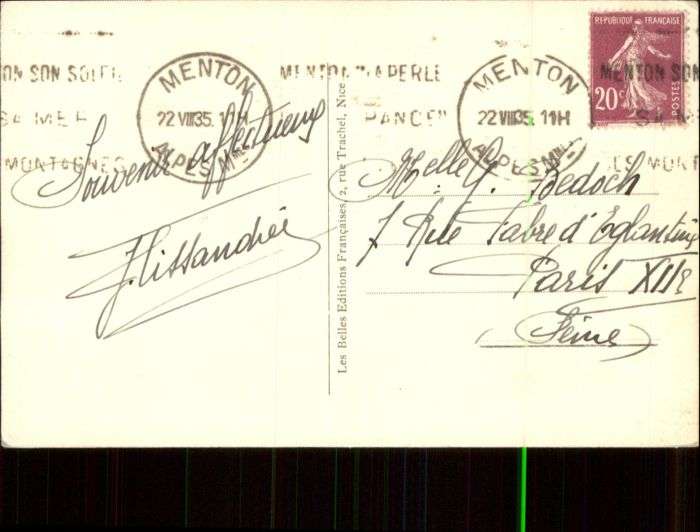 ON SON SOLEIL
SA MER
MONTAGNES
MENTON
22 VIII 35. 11H
ALPES Mmes
MENTON "LA PERLE
FRANCE"
MENTON
22 VIII 35. 11H
ALPES Mmes
MENTON SON
SA
SES MONT
REPUBLIQUE FRANÇAISE
20c
POSTES
Souvenir affectueux
Les Belles Editions Françaises, 2, rue Trachel, Nice
Melle G. Bedoch
7 Rue Fabre d'Eglantine
Paris XIIe
(Seine)